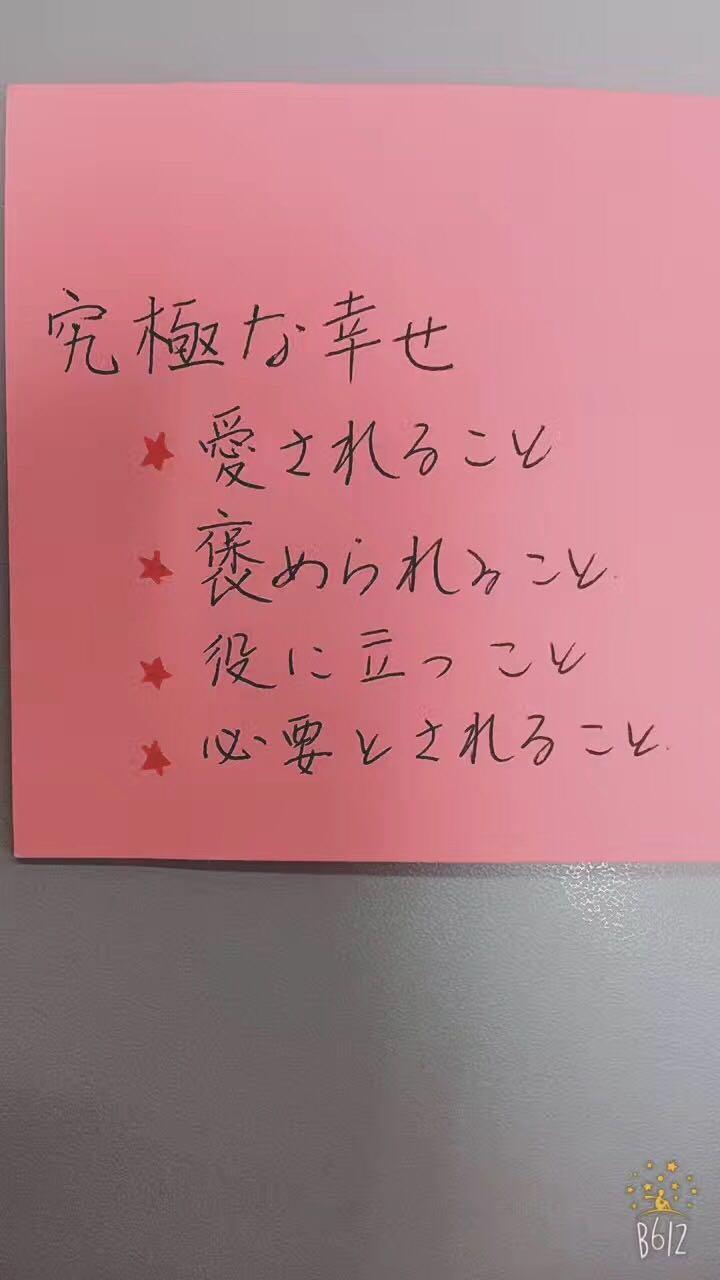 究極な幸せ
★ 愛されること
★ 褒められること
★ 役に立つこと
★ 必要とされること
B612